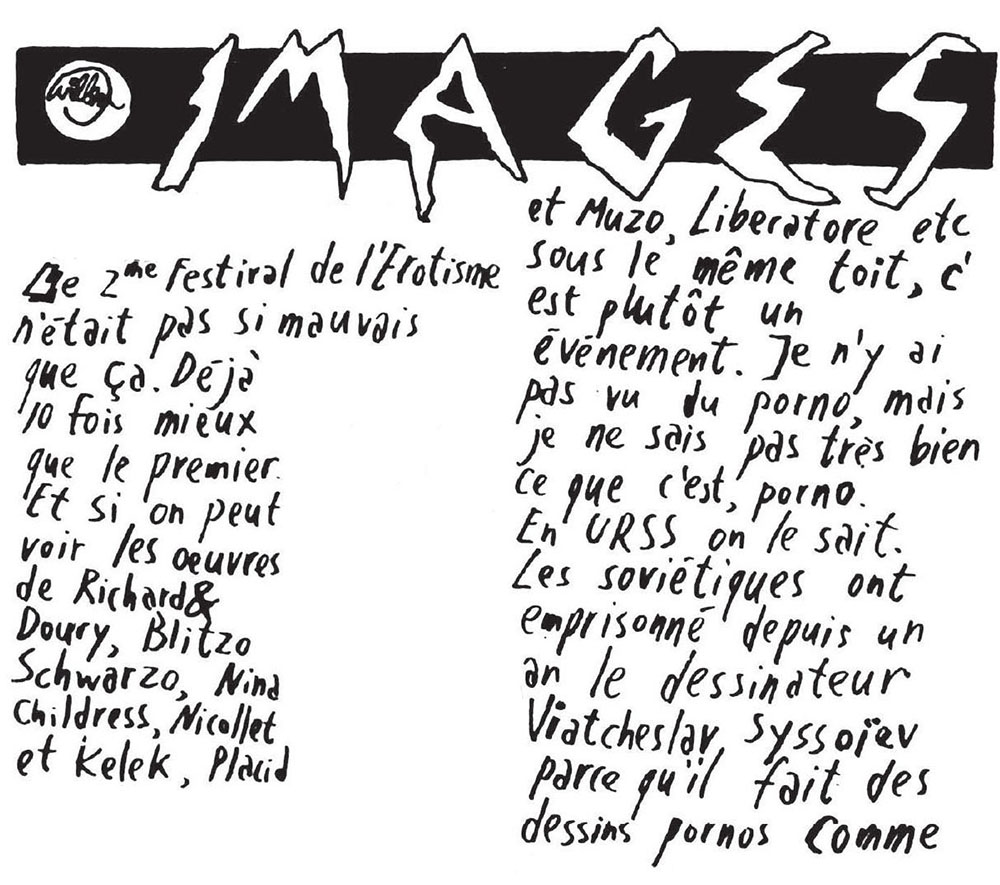 Willem
IMAGES
Le 2me Festival de l'Erotisme
n'était pas si mauvais
que ça. Déjà
10 fois mieux
que le premier.
Et si on peut
voir les oeuvres
de Richard &
Doury, Blitzo
Schwarzo, Nina
Childress, Nicollet
et Kelek, Placid
et Muzo, Liberatore etc
sous le même toit, c'
est plutôt un
événement. Je n'y ai
pas vu du porno, mais
je ne sais pas très bien
ce que c'est, porno.
En URSS on le sait.
Les soviétiques ont
emprisonné depuis un
an le dessinateur
Viatcheslav Syssoïev
parce qu'il fait des
dessins pornos comme